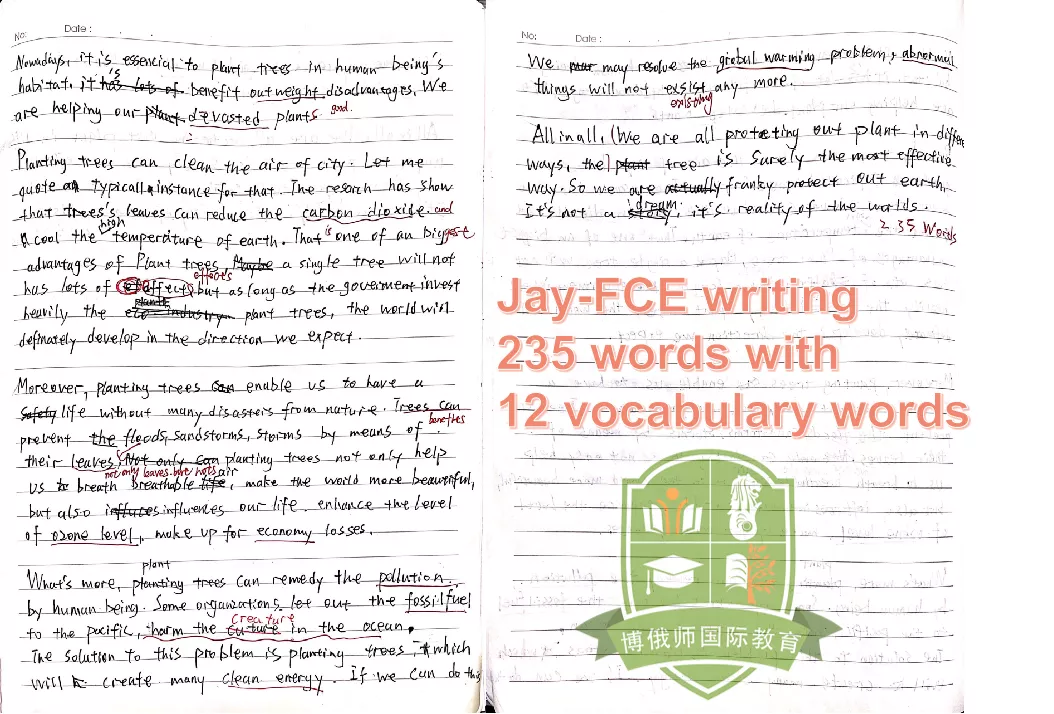 No:
Date :
Nowadays, it is essencial to plant trees in human being's
habitat, it is has lots of benefit outweight disadvantages. We
are helping our plant devasted plants good.
Planting trees can clean the air of city. Let me
quote an typicall instance for that. The resarch has show
that trees's leaves can reduce the carbon dioxide. and
cool the high temperature of earth. That is one of an biggest
advantages of Plant trees, Maybe a single tree will not
has lots of effect effects but as long as the goverment invest
heavily the plant eco industry plant trees, the world will
definately develop in the direction we expect.
Moreover, planting trees can enable us to have a
safety life without many disasters from nature. Trees can
prevent the floods, sandstorms, storms by means of benefits
their leaves, Not only can planting trees not only help
not only leaves but
us to breath breathable life air, make the world more beautiful,
but also influences our life. enhance the level
of ozone level, make up for economy losses.
plant
What's more, planting trees can remedy the pollution
by human being. Some organizations let out the fossil fuel
creature
to the pacific, harm the in the ocean.
The solution to this problem is planting trees, which
will create many clean energy. If we can do this
No:
Date :
We may resolve the grobal warming problem, abnormal
things will not exsist any more.
existing
All in all, (We are all protecting out plant in
ways, the plant tree is surely the most effective
way. So we are actually franky protect out earth,
dream
It's not a story, it's reality of the worlds.
235 Words
Jay-FCE writing
235 words with
12 vocabulary words
博俄师国际教育